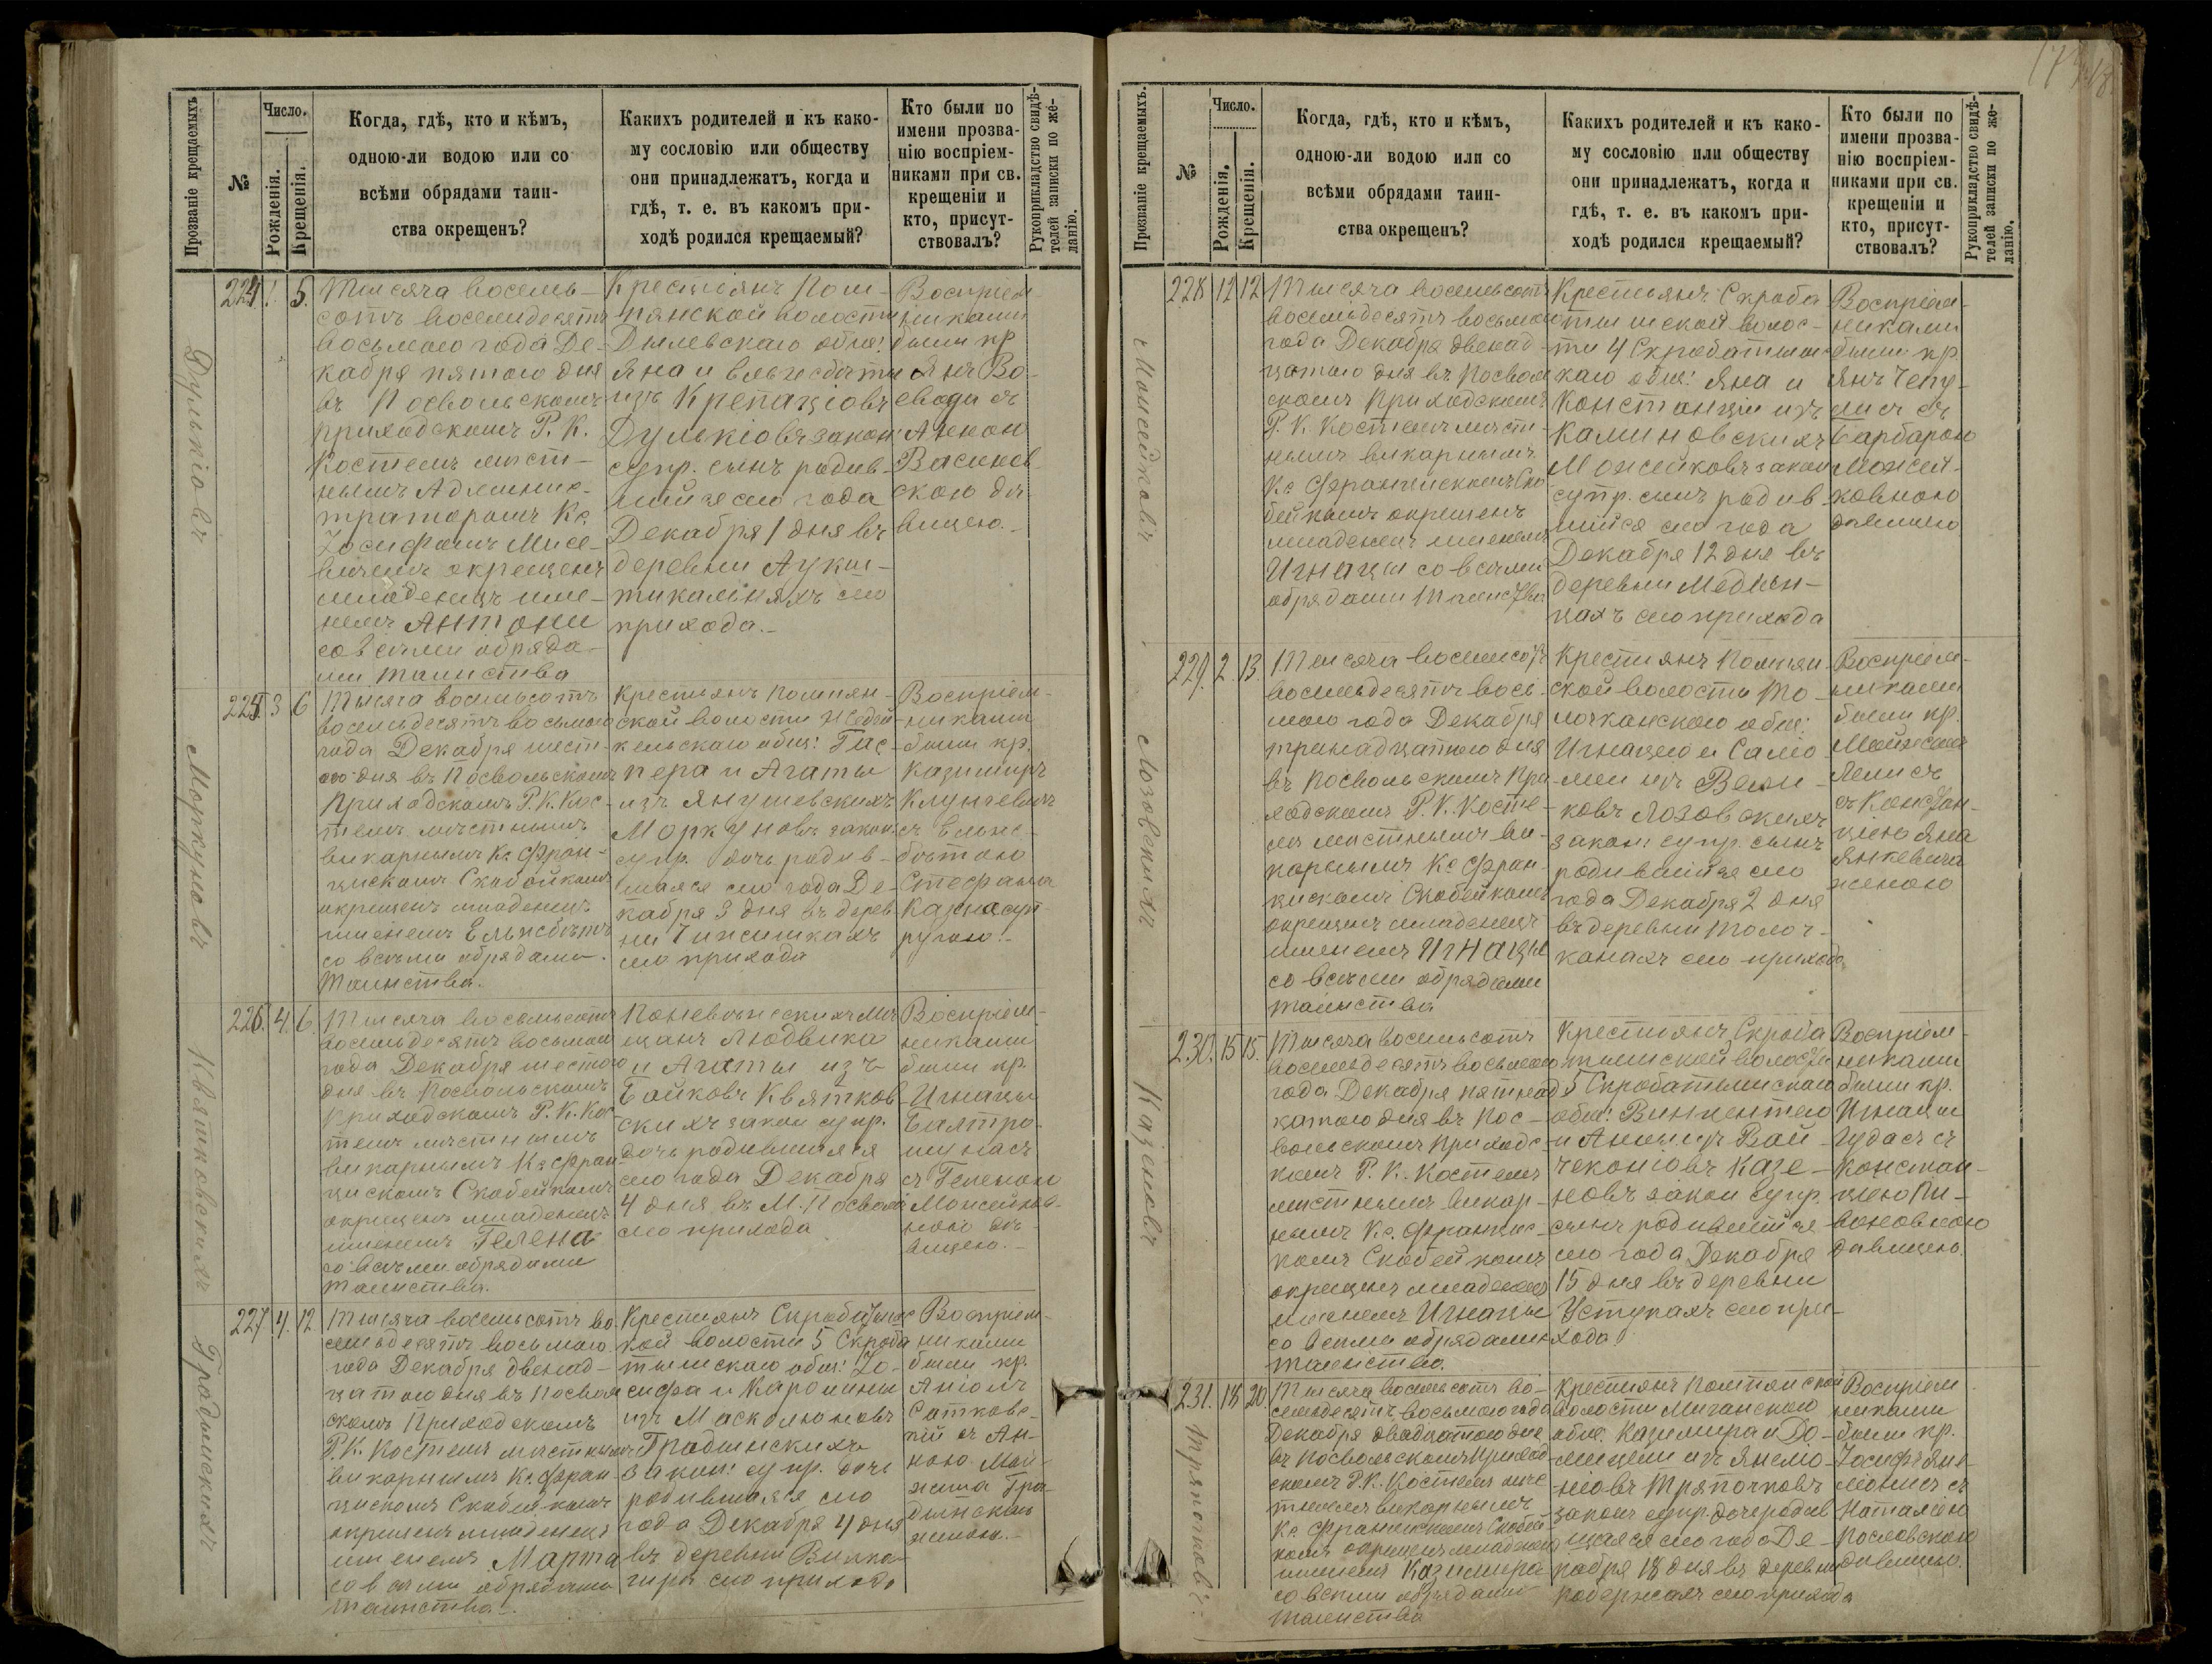 Прозваніе крещаемыхъ
№
Число.
Рожденія.
Крещенія.
Когда, гдѣ, кто и кѣмъ,
одною-ли водою или со
всѣми обрядами таин-
ства окрещенъ?
Какихъ родителей и къ како-
му сословію или обществу
они принадлежатъ, когда и
гдѣ, т. е. въ какомъ при-
ходѣ родился крещаемый?
Кто были по
имени прозва-
нію воспріем-
никами при св.
крещеніи и
кто, присут-
ствовалъ?
Рукоприкладство свидѣ-
телей записки по же-
ланію.
Дулькіовъ
224 1. 5.
Тысяча восемь-
сотъ восемидесять
восьмаго года Де-
кабря пятаго дня
въ Посвольскомъ
приходскомъ Р. К.
Костелѣ мѣст-
нымъ Админис-
траторомъ Кс.
Іосифомъ Мисе-
вичемъ окрещенъ
младенецъ име-
немъ Антони
со всѣми обряда-
ми таинства
Крестьянъ Пом-
пянской волости
Дылевскаго общ:
Яна и Ельжбѣты
изъ Крепацovъ
Дулькіовъ закон:
супр. сынъ родив-
шійся сего года
Декабря 1 дня въ
деревни
прихода.
Воспріем-
никами
были кр.
Янъ Во-
съ
скою дѣ-
вицею.
Моркуновъ
225. 3 6
Тысяча восемьсотъ
восемьдесятъ восьмаго
года Декабря шест-
ого дня въ Посвольскомъ
Приходскомъ Р. К. Кос-
телѣ мѣстнымъ
викарнымъ Кс. Фран-
цискомъ Скобейкомъ
окрещенъ младенецъ
именемъ Ельжбѣта
со всѣми обрядами
Таинства.
Крестьянъ Помпян-
ской волости
кельскаго общ: Гас-
пера и Агаты
изъ Янушевскихъ
Моркуновъ закон:
супр. дочь родив-
шаяся сего года Де-
кабря 3 дня въ дерев-
ни
сего прихода
Воспріем-
никами
были кр.
Казимиръ
съ Ельжб-
бѣтою
Стефана
супругою.
Квятковскихъ
226. 4. 6.
Тысяча восемьсотъ
восемьдесятъ восьмаго
года Декабря шестого
дня въ Посвольскомъ
Приходскомъ Р. К. Кос-
телѣ мѣстнымъ
викарнымъ Кс. Фран-
цискомъ Скобейкомъ
окрещенъ младенецъ
именемъ Гелена
со всѣми обрядами
таинства.
Поневѣжскихъ мѣ-
щанъ Людвика
и Агаты изъ
Бойковъ Квятков-
скихъ закон супр.
дочь родившаяся
сего года Декабря
4 дня въ М. Посволѣ
сего прихода
Воспріем-
никами
были кр.
Игнацы
съ Геленою
Моисейков-
ною дѣ-
вицею.
Градынскихъ
227. 4. 12
Тысяча восемьсотъ во-
семьдесятъ восьмаго
года Декабря двенад-
цатого дня въ Посволь-
скомъ Приходскомъ
Р. К. Костелѣ мѣстнымъ
викарнымъ Кс. Фран-
цискомъ Скобейкомъ
окрещенъ младенецъ
именемъ Марта
со всѣми обрядами
таинства.
Крестьянъ Скробатыш-
кой волости 5 Скроба-
тышскаго общ: Іо-
сифа и Каролины
изъ Масколюновъ
Градынскихъ
закон: супр. дочь
родившаяся сего
года Декабря 4 дня
въ деревни
сего прихода
Воспріем-
никами
были кр.
съ Ан-
ною
Гра-
дынскаго
женою.
Прозваніе крещаемыхъ.
№
Число.
Рожденія.
Крещенія.
Когда, гдѣ, кто и кѣмъ,
одною-ли водою или со
всѣми обрядами таин-
ства окрещенъ?
Какихъ родителей и къ како-
му сословію или обществу
они принадлежатъ, когда и
гдѣ, т. е. въ какомъ при-
ходѣ родился крещаемый?
Кто были по
имени прозва-
нію воспріем-
никами при св.
крещеніи и
кто, присут-
ствовалъ?
Рукоприкладство свидѣ-
телей записки по же-
ланію.
Моисейковъ
228 12 12
Тысяча восемьсотъ
восемьдесятъ восьмаго
года Декабря двенад-
цатого дня въ Посволь-
скомъ Приходскомъ
Р. К. Костелѣ мѣст-
нымъ викарнымъ
Кс. Францискомъ Ско-
бейкомъ окрещенъ
младенецъ именемъ
Игнацы со всѣми
обрядами таинства
Крестьянъ Скроба-
тышской волос-
ти 4 Скробатышс-
каго общ: Яна и
Констанціи изъ
Калиновскихъ
Моисейковъ закон
супр. сынъ родив-
шійся сего года
Декабря 12 дня въ
деревни
сего прихода
Воспріем-
никами
были кр.
Янъ
съ
Барбарою
Моисей-
ковною
дѣвицею
Лозовскихъ
229. 2. 13.
Тысяча восемьсотъ
восемьдесятъ вось-
маго года Декабря
тринадцатого дня
въ Посвольскомъ При-
ходскомъ Р. К. Косте-
лѣ мѣстнымъ ви-
карнымъ Кс. Фран-
цискомъ Скобейкомъ
окрещенъ младенецъ
именемъ Игнацы
со всѣми обрядами
таинства
Крестьянъ Помпян-
ской волости То-
лочканскаго общ:
Игнацего и Сало-
меи изъ
Лозовскихъ
закон: супр. сынъ
родившійся сего
года Декабря 2 дня
въ деревни Толоч-
канахъ сего прихода
Воспріем-
никами
были кр.
съ Констан-
ціею Яна
Янкевича
женою
Казеновъ
230. 15 15.
Тысяча восемьсотъ
восемьдесятъ восьмаго
года Декабря пятнад-
цатого дня въ Пос-
вольскомъ Приходс-
комъ Р. К. Костелѣ
мѣстнымъ викар-
нымъ Кс. Францис-
комъ Скобейкомъ
окрещенъ младенецъ
именемъ Игнацы
со всѣми обрядами
таинства.
Крестьянъ Скроба-
тышской волости
5 Скробатышскаго
общ: Винцентего
и Анны изъ Вай-
чеконіовъ Казе-
новъ закон супр.
сынъ родившійся
сего года Декабря
15 дня въ деревни
Уступахъ сего при-
хода.
Воспріем-
никами
были кр.
Игнацы
съ
Констан-
ціею
дѣвицею.
Тряпочковъ
231. 18 20.
Тысяча восемьсотъ во-
семьдесятъ восьмаго года
Декабря двадцатого дня
въ Посвольскомъ Приход-
скомъ Р. К. Костелѣ мѣс-
тнымъ викарнымъ
Кс. Францискомъ Скобей-
комъ окрещенъ младенецъ
именемъ Казимира
со всѣми обрядами
таинства
Крестьянъ Помпянской
волости
общ. Казимира и До-
Тряпочковъ
закон супр. дочь родив-
шаяся сего года Де-
кабря 18 дня въ деревни
сего прихода
Воспріем-
никами
были кр.
Іосифъ
съ
Наталіею
дѣвицею.